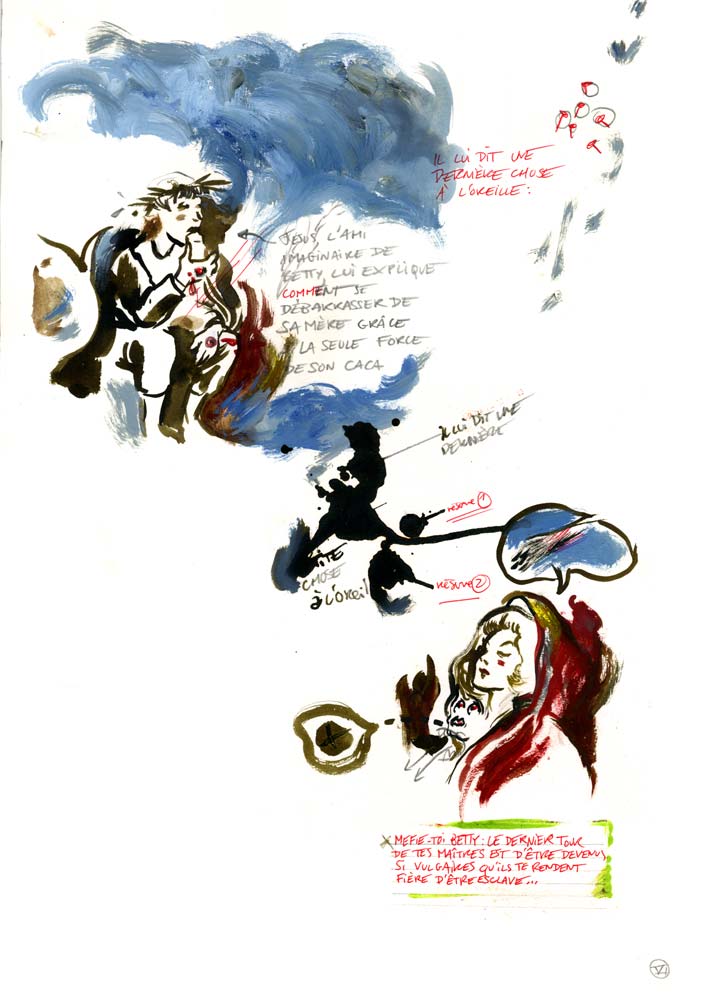 IL LUI DIT UNE
DERNIÈRE CHOSE
À L'OREILLE :
JESUS, L'AMI
IMAGINAIRE DE
BETTY, LUI EXPLIQUE
COMMENT SE
DÉBARRASSER DE
SA MÈRE GRÂCE
À LA SEULE FORCE
DE SON CACA
IL LUI DIT UNE
DERNIÈRE
CHOSE
à L'OREIL
RÉSERVE 1
RÉSERVE 2
MEFIE-TOI BETTY : LE DERNIER TOUR
DE TES MAÎTRES EST D'ÊTRE DEVENUS
SI VULGAIRES QU'ILS TE RENDENT
FIÈRE D'ÊTRE ESCLAVE...
VI